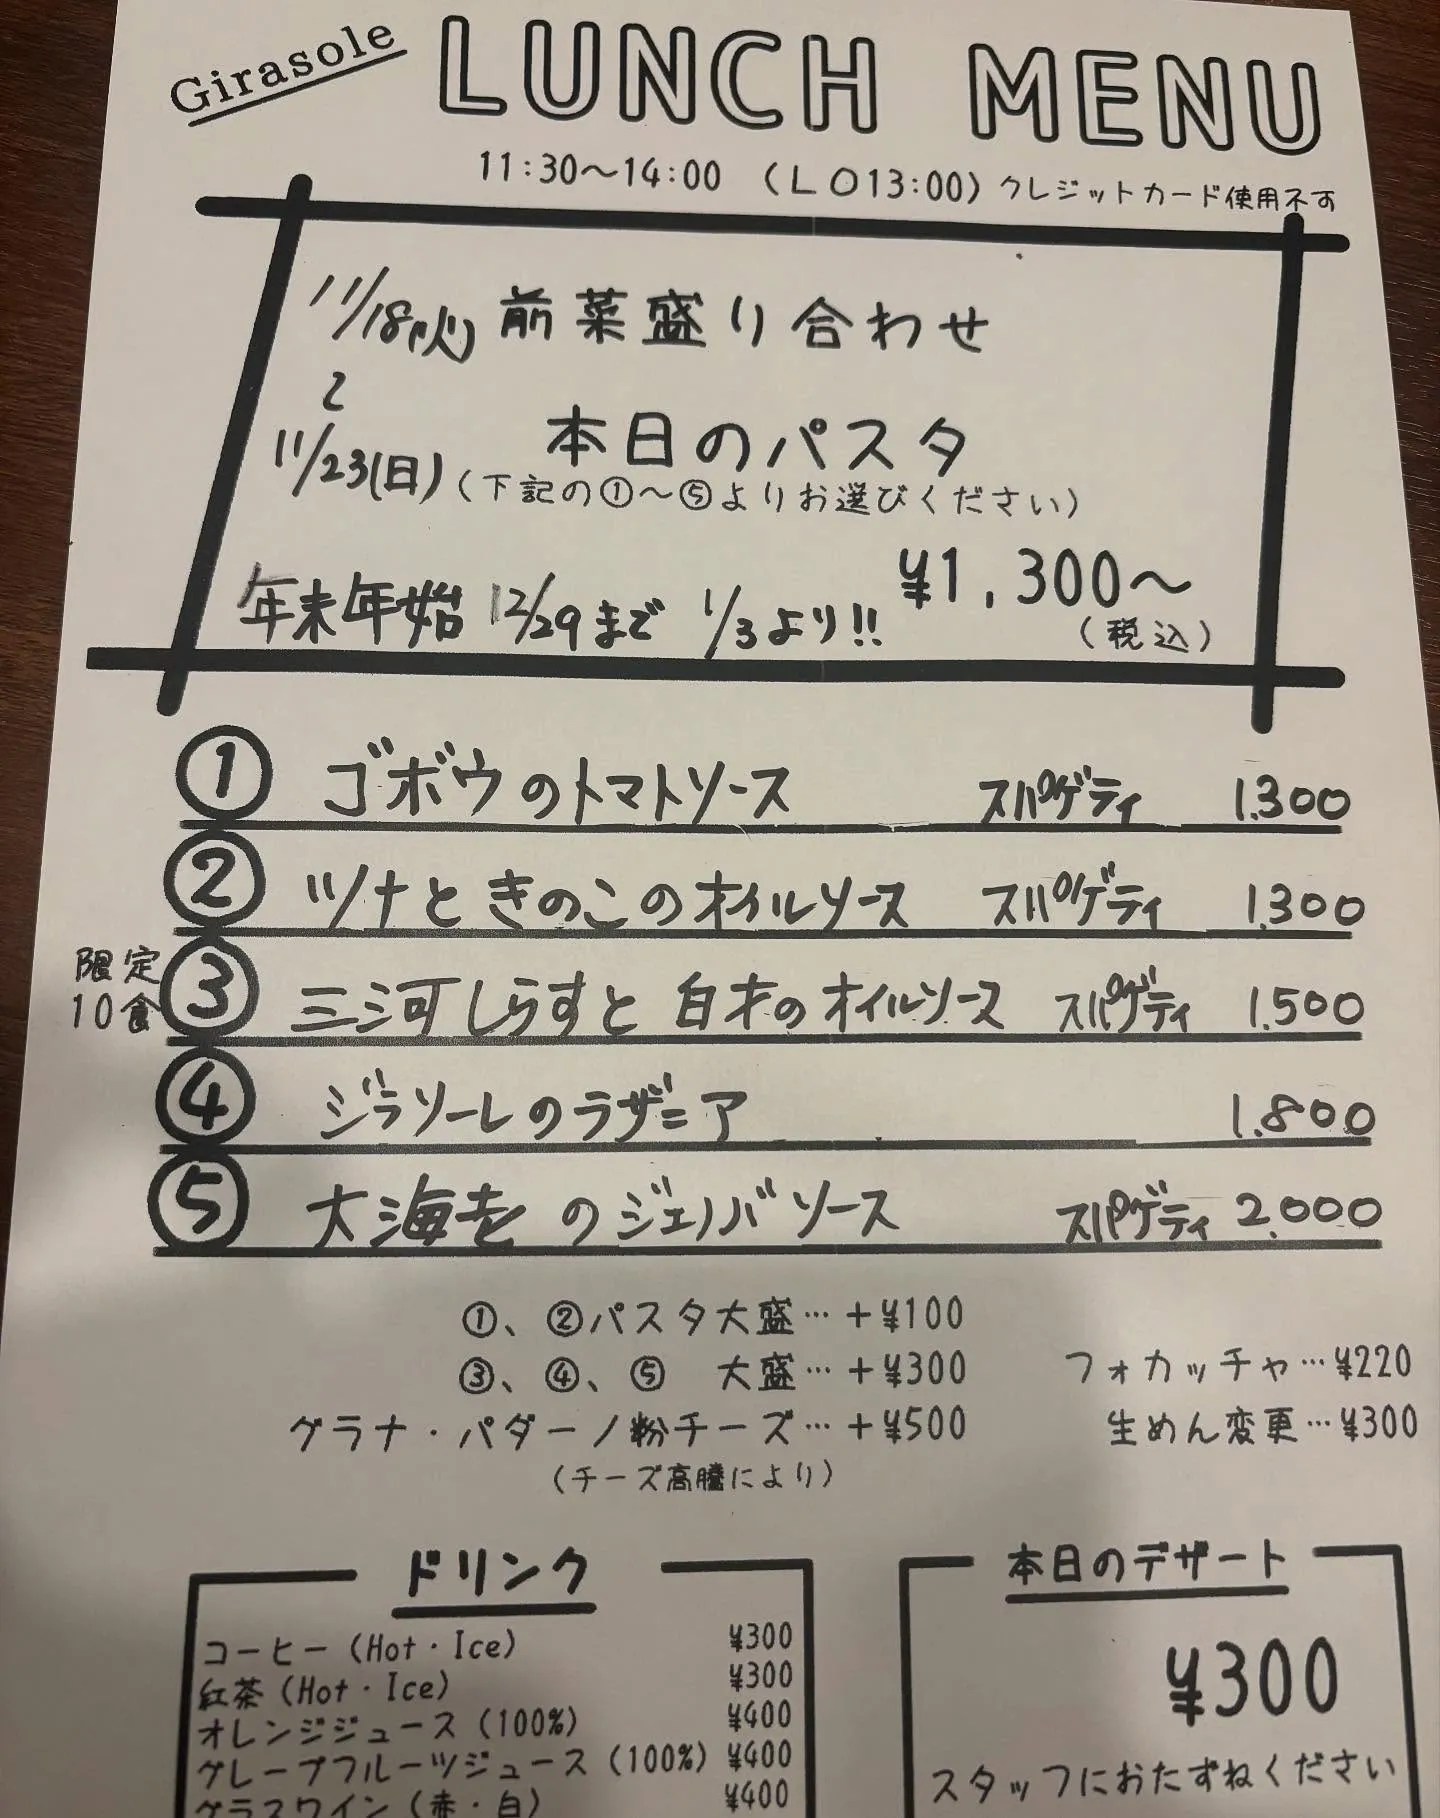 Girasole LUNCH MENU
11:30〜14:00 (LO13:00) クレジットカード使用不可
11/18(火) 前菜盛り合わせ
〜
11/23(日) 本日のパスタ
(下記の①〜⑤よりお選びください)
¥1,300〜
(税込)
年末年始 12/29まで 1/3より!!
① ゴボウのトマトソース スパゲティ 1.300
② ツナときのこのオイルソース スパゲティ 1.300
限定
10食
③ 三河しらすと白才のオイルソース スパゲティ 1.500
④ ジラソーレのラザニア 1.800
⑤ 大海老のジェノバソース スパゲティ 2.000
①、②パスタ大盛…+¥100
③、④、⑤ 大盛…+¥300
グラナ・パダーノ粉チーズ…+¥500
(チーズ高騰により)
フォカッチャ…¥220
生めん変更…¥300
ドリンク
コーヒー(Hot・Ice) ¥300
紅茶(Hot・Ice) ¥300
オレンジジュース(100%) ¥400
グレープフルーツジュース(100%) ¥400
グラスワイン(赤・白) ¥400
本日のデザート
¥300
スタッフにおたずねください